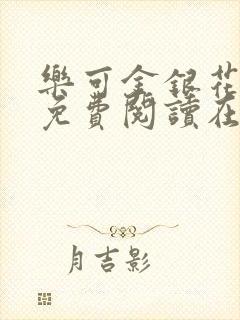 樂可金銀花
免費閱讀在
月吉影